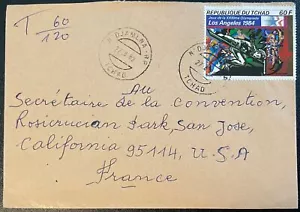 T 60
120
N'DJAMENA R.P.
TCHAD
REPUBLIQUE DU TCHAD
Jeux de la XXIIIème Olympiade
Los Angeles 1984
60F
TCHAD
AU
Secrétaire de la Convention,
Rosicrucian Park, San Jose,
California 95114, U.S.A
France